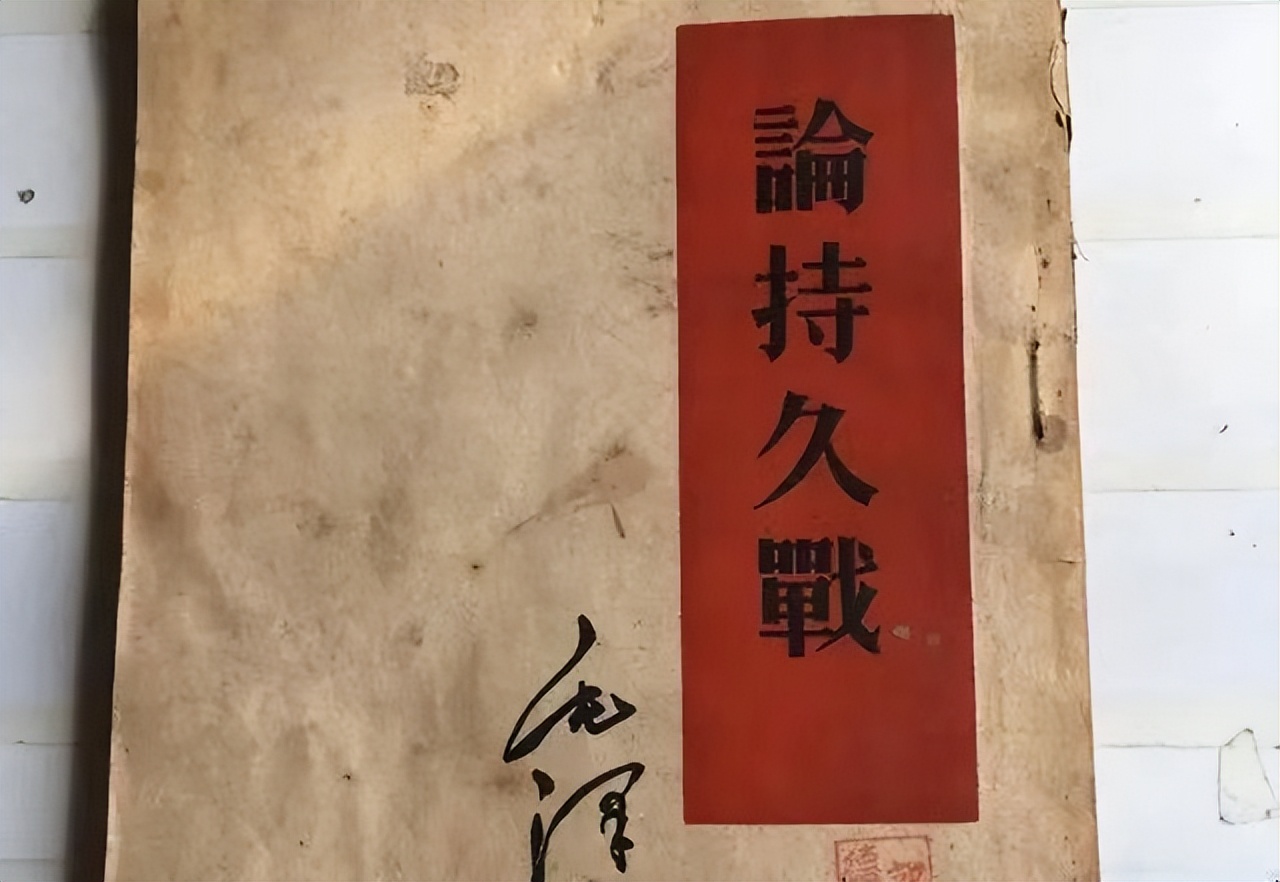 論持久戰
毛澤